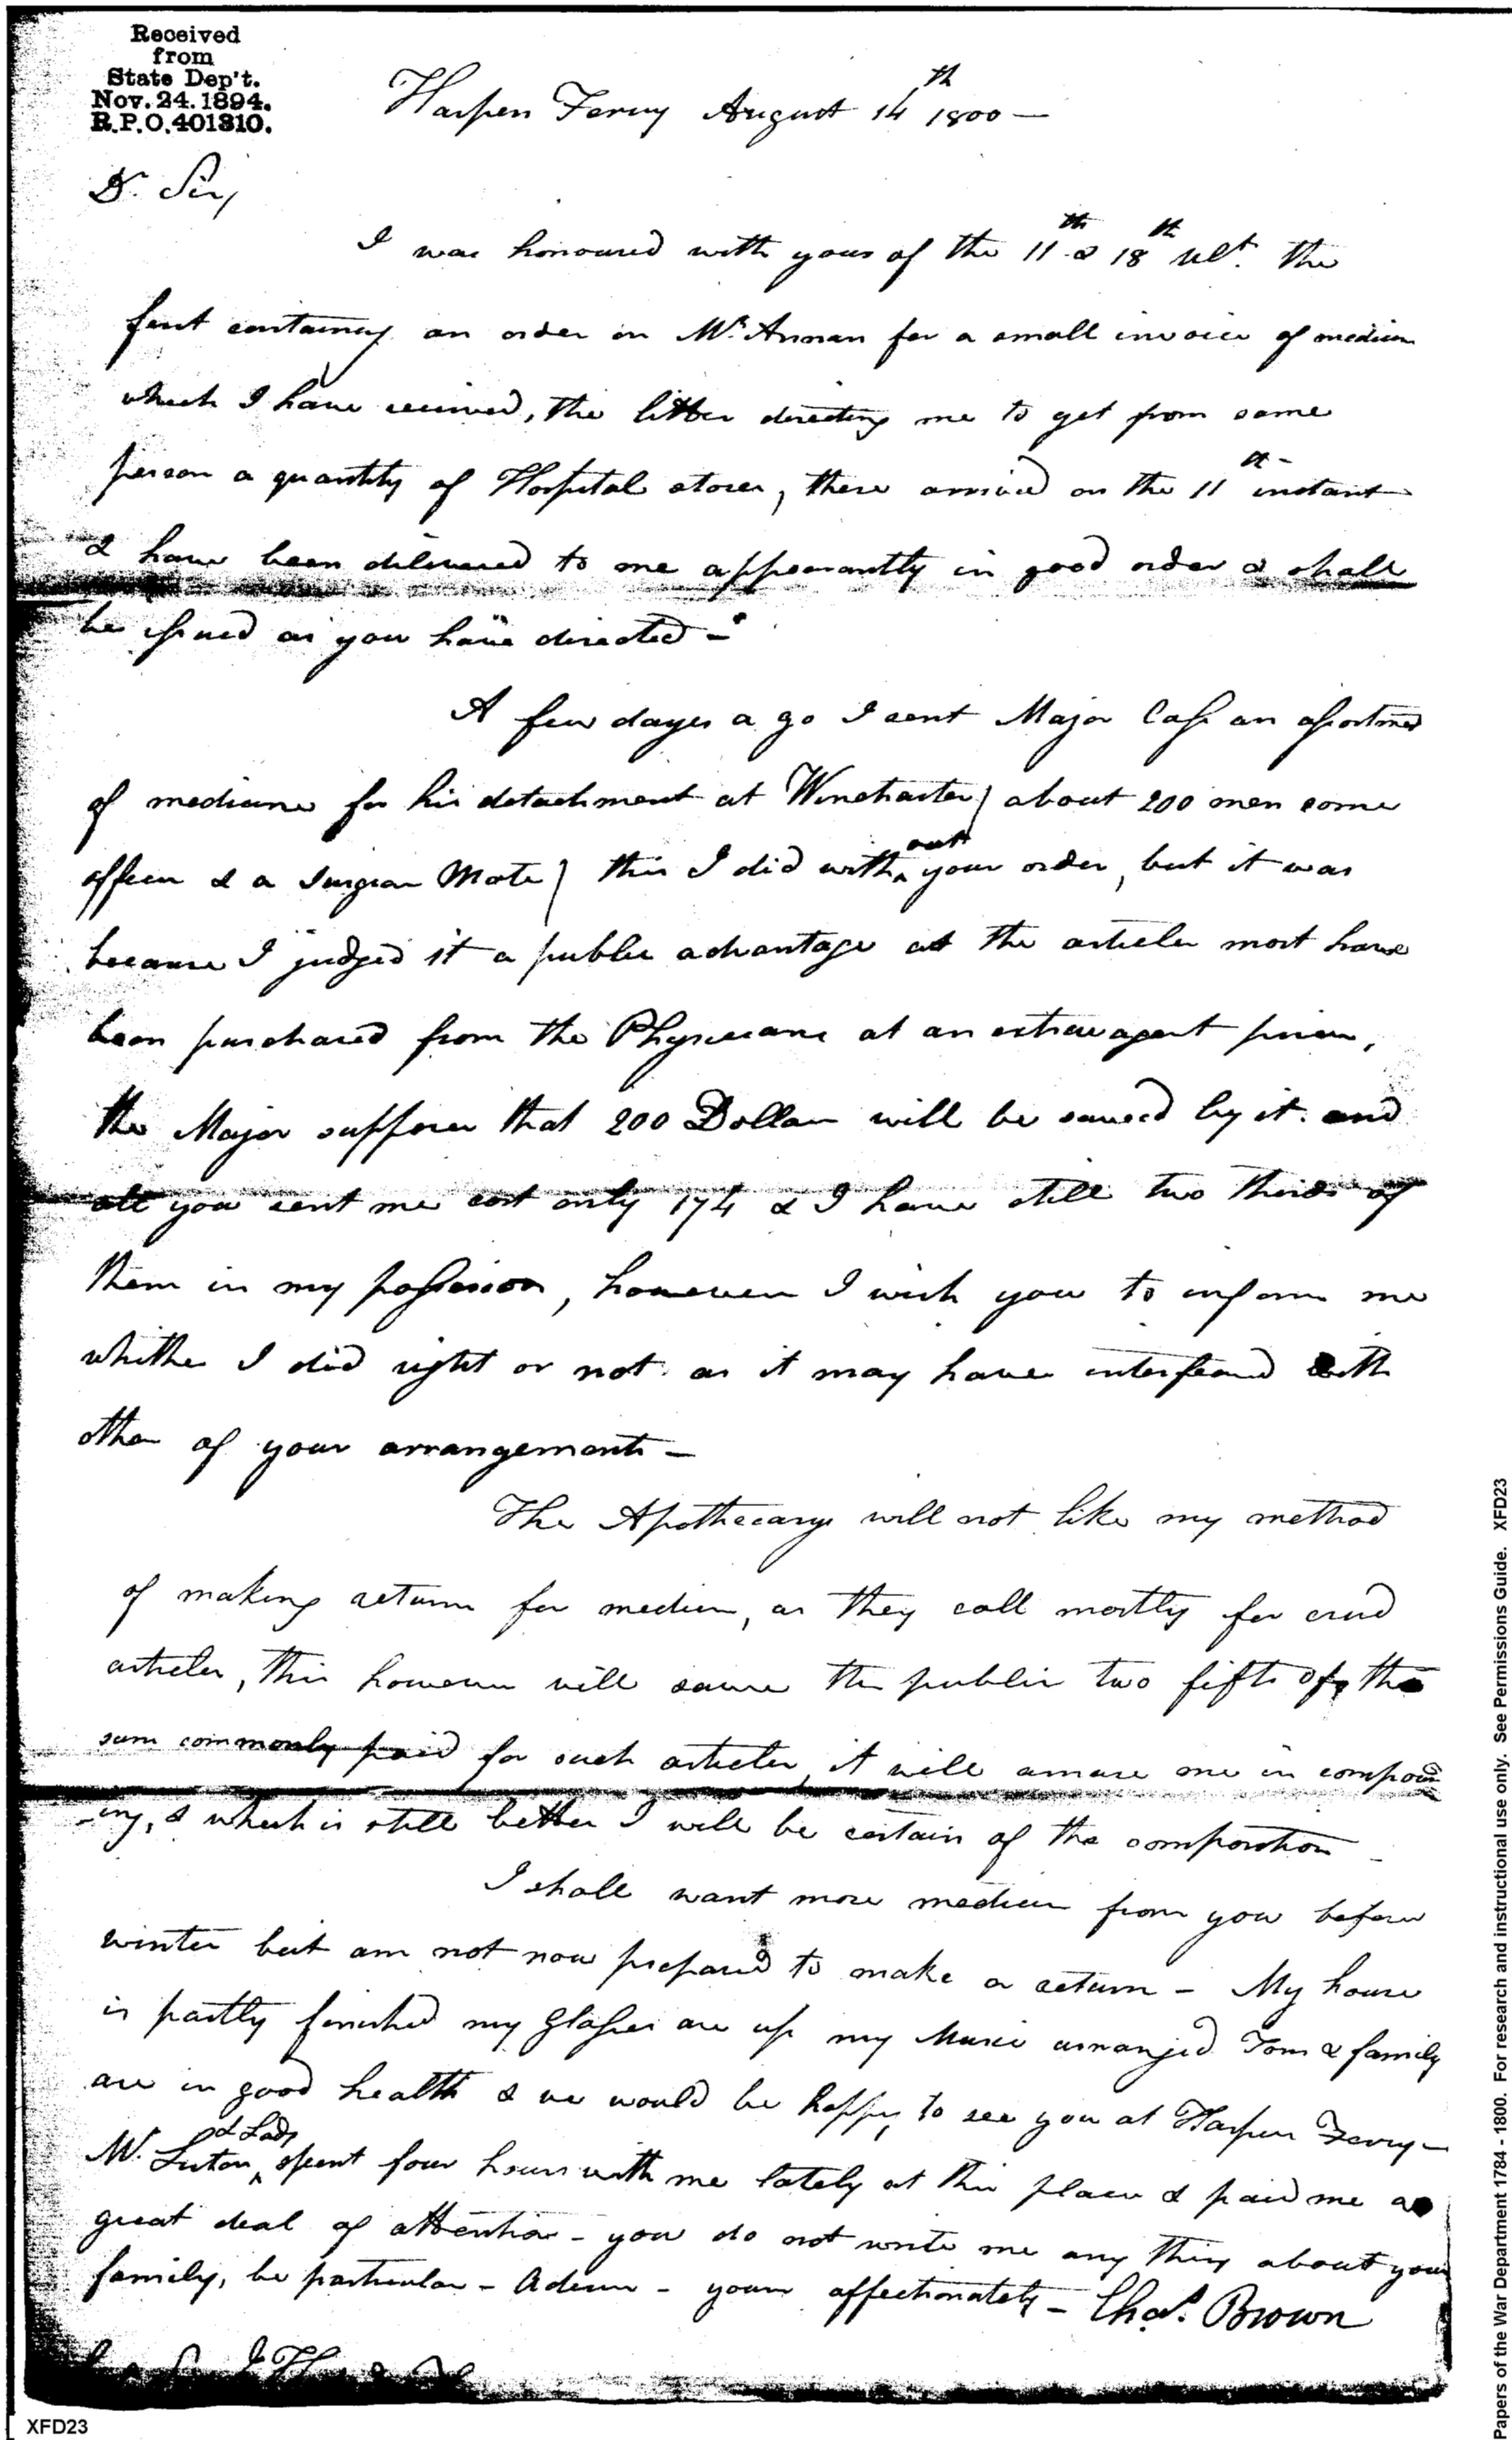 Received
from
State Dep't.
Nov. 24. 1894.
R.P.O. 401310.
Harpers Ferry August 14th 1800 —
Dr. Sir,
I was honoured with yours of the 11th & 18th Ult. the
first containing an order on Mr. Annan for a small invoice of medicine
which I have received, the latter directing me to get from same
person a quantity of Hospital stores, these arrived on the 11th instant
& have been delivered to me appearantly in good order & shall
be issued as you have directed —
A few dayes a go I sent Major Cass an assortmet
of medicine for his detachment at Winchester / about 200 men some
officers & a Surgeon Mate / this I did without your order, but it was
because I judged it a public advantage as the articles most have
been purchased from the Physicians at an extravagent price,
the Major supposes that 200 Dollars will be saved by it. and
all you sent me cost only 174 & I have still two thirds of
them in my possession, however I wish you to inform me
whither I did right or not. as it may have interfeared with
other of your arrangements —
The Apothecarys will not like my method
of making returns for medicine, as they call mostly for crud
articles, this however will save the public two fifts of the
sum commonly paid for such articles, it will amuse me in compound
-ing, & which is still better I will be certain of the composition —
I shall want more medicine from you before
winter but am not now prepared to make a return — My house
is partly finished my Glasses are up my Music arranged Tom & family
are in good health & we would be happy to see you at Harpers Ferry —
Mr. & Lady spent four hours with me lately at this place & paid me a
great deal of attention — you do not write me any thing about your
family, be particular — Adieu — yours affectionately — Chas. Brown
XFD23
Papers of the War Department 1784 - 1800. For research and instructional use only. See Permissions Guide. XFD23